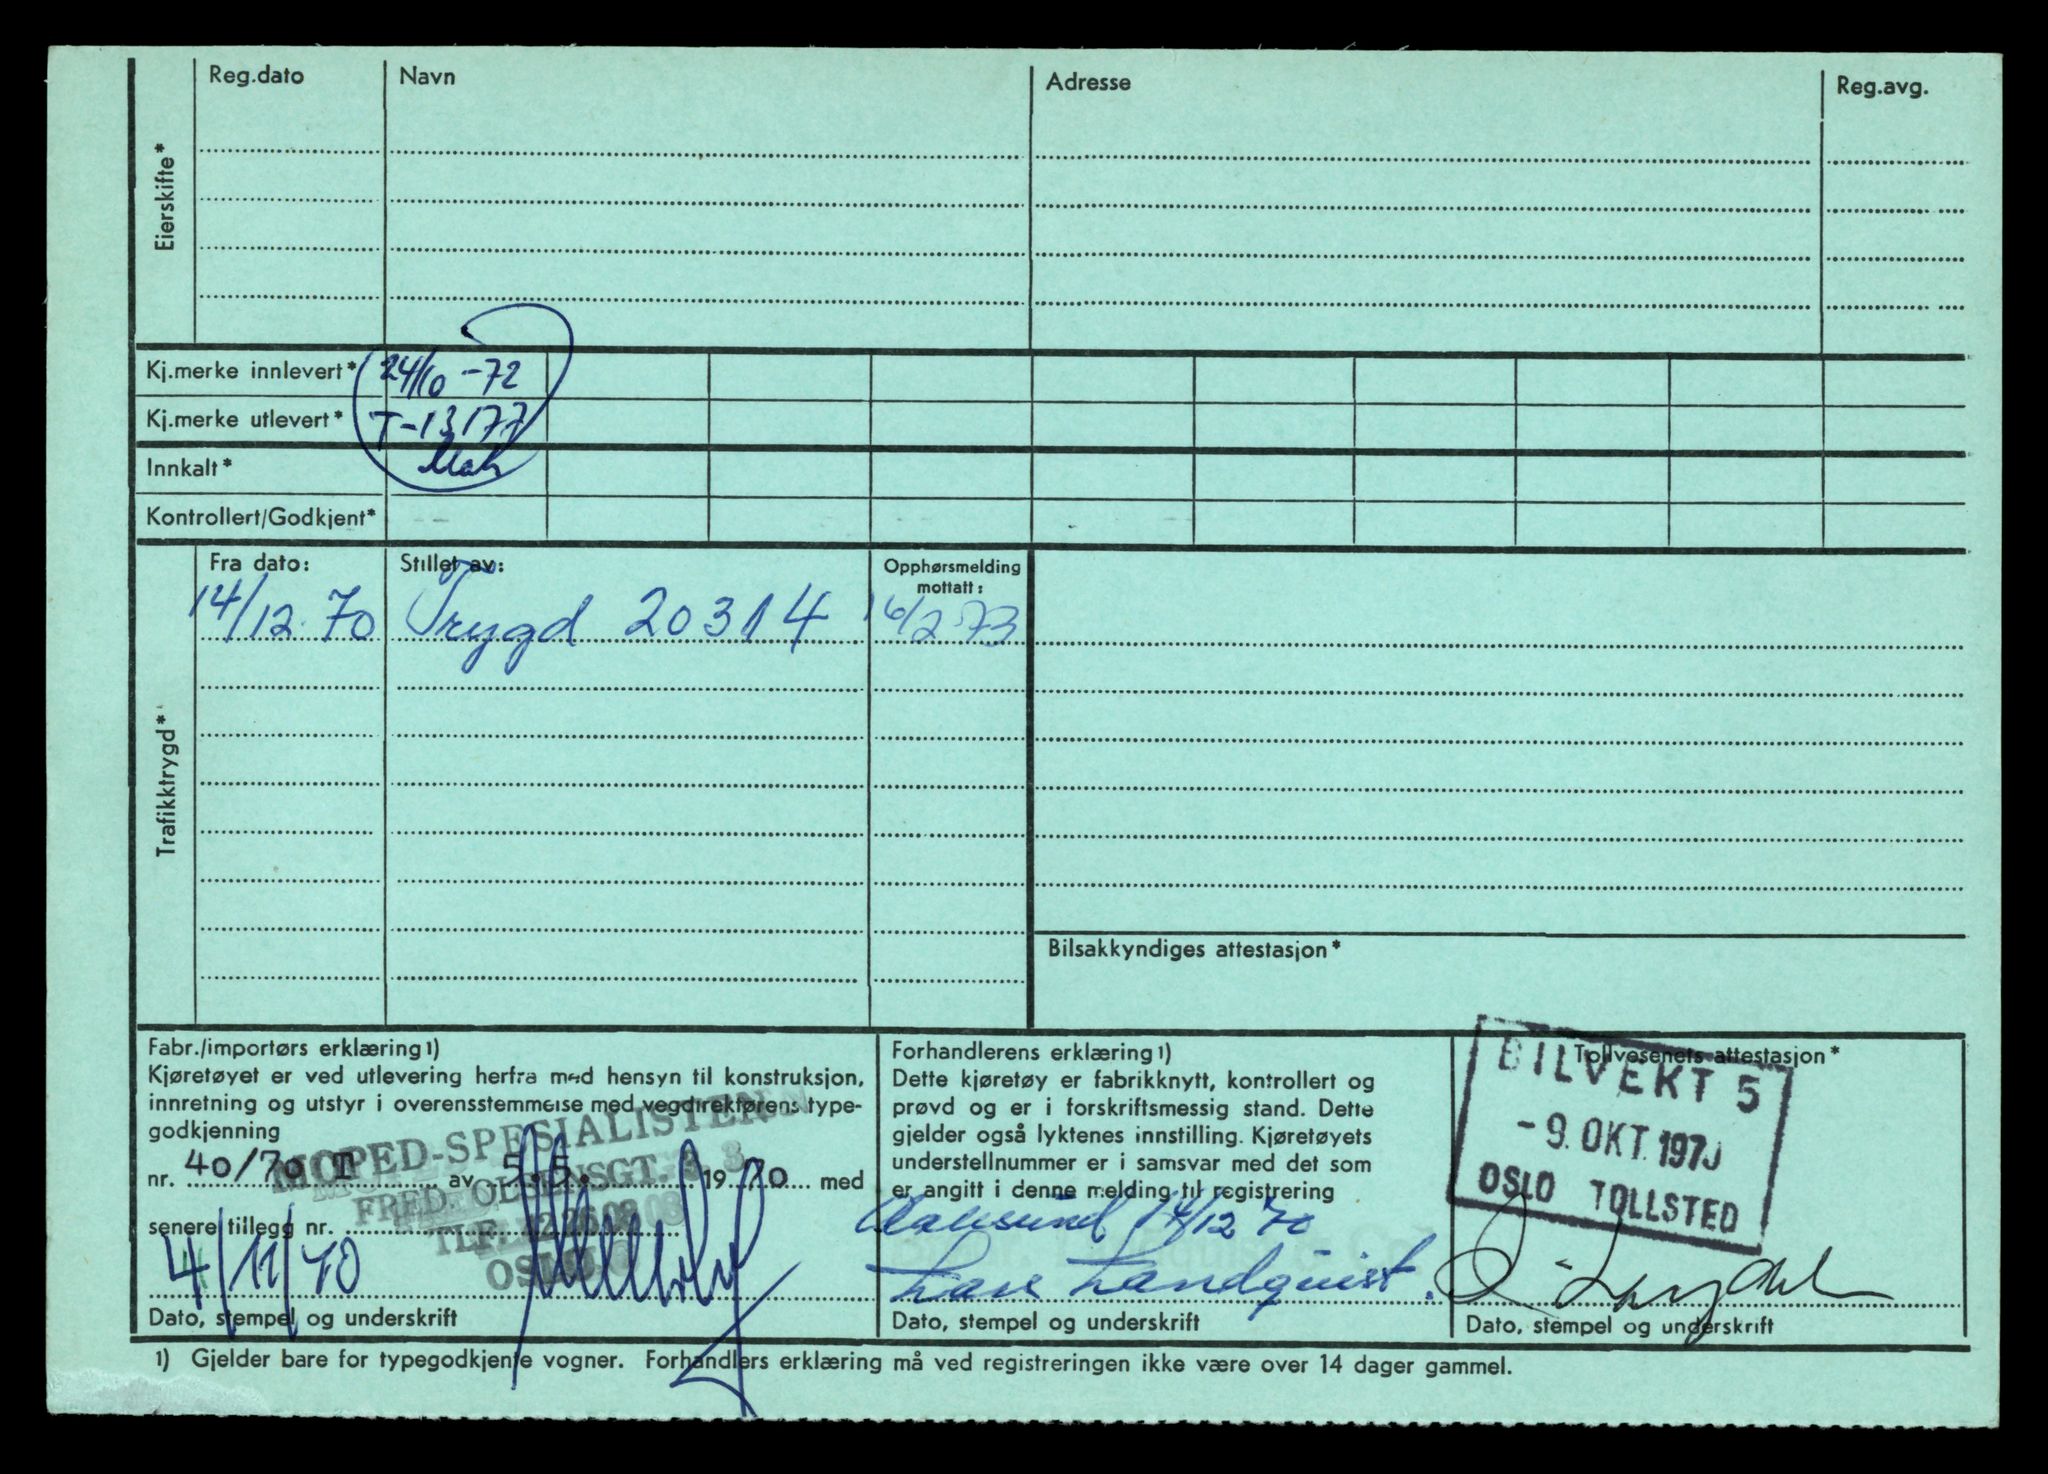 Reg.dato Navn Adresse Reg.avg.
Eierskifte*
Kj.merke innlevert* 24/10 -72
Kj.merke utlevert* T-13177
Innkalt*
Kontrollert/Godkjent*
Trafikktrygd*
Fra dato: Stillet av: Opphørsmelding
mottatt:
14/12 70 Trygd 20314 16/2 73
Bilsakkyndiges attestasjon*
Fabr./importørs erklæring1)
Kjøretøyet er ved utlevering herfra med hensyn til konstruksjon,
innretning og utstyr i overensstemmelse med vegdirektørens type-
godkjenning
nr. 40/70 T av 5.5. 1970 med
senere tillegg nr.
MOPED-SPESIALISTEN
FRED. OLSENSGT. 3
TLF.
OSLO
4/11/70
Dato, stempel og underskrift
Forhandlerens erklæring1)
Dette kjøretøy er fabrikknytt, kontrollert og
prøvd og er i forskriftsmessig stand. Dette
gjelder også lyktenes innstilling. Kjøretøyets
understellnummer er i samsvar med det som
er angitt i denne melding til registrering
14/12 70
Lars Landquist.
Dato, stempel og underskrift
Tollvesenets attestasjon*
BILVEKT 5
-9. OKT. 1970
OSLO TOLLSTED
Dato, stempel og underskrift
1) Gjelder bare for typegodkjente vogner. Forhandlers erklæring må ved registreringen ikke være over 14 dager gammel.